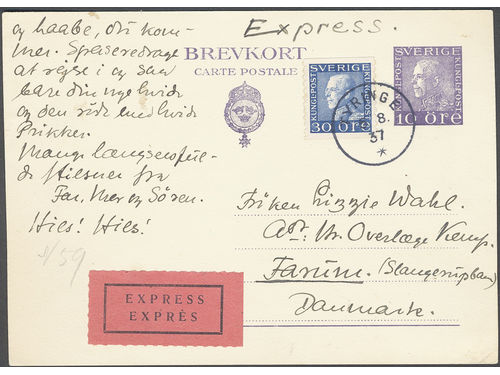 og haabe, du kom-
mer. Spaseredragt
at rejse i og saa
bare din nye hvide
og den røde med hvide
Prikker.
Mange længselsful-
de Hilsner fra
Far, Mor og Søren.
Hils! Hils!
Express.
BREVKORT
CARTE POSTALE
SVERIGE
KUNGL·POST
KUNGL·POST
30 ÖRE
SVERIGE
KUNGL·POST
KUNGL·POST
10 ÖRE
8.
37
Frøken Lizzie Wahl.
Adr. Overlæge Kemp.
Farum. (Slangerupbane)
Danmark.
EXPRESS
EXPRÈS